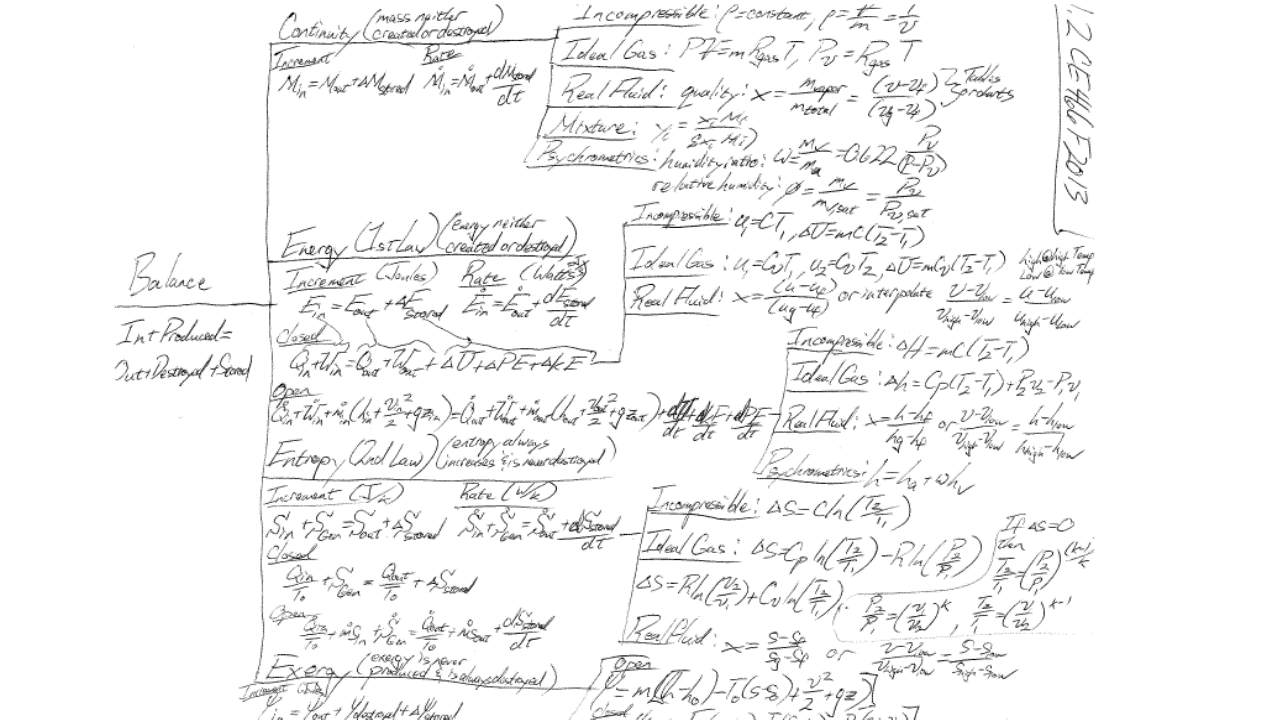 Continuity (mass neither created or destroyed)
Increment Rate
M_in = M_out + ΔM_stored Ṁ_in = Ṁ_out + dM_stored/dt
Incompressible: ρ = constant, ρ = V/m = 1/v
Ideal Gas: PV = mR_gasT, Pv = R_gas T
Real Fluid: quality: x = m_vapor/m_total = (v-v_f)/(v_g-v_f)
Mixture: y_i = x_i M_i/(Σx_i M_i)
Psychrometrics: humidity ratio: ω = m_v/m_a = 0.622 P_v/(P-P_v)
relative humidity: φ = m_v/m_v,sat = P_v/P_v,sat
1.2 CE466 F2013
Balance
In + Produced =
Out + Destroyed + Stored
Energy (1st Law) (energy neither created or destroyed)
Increment (Joules) Rate (Watts)
E_in = E_out + ΔE_stored Ė_in = Ė_out + dE_stored/dt
Closed
Q_in + W_in = Q_out + W_out + ΔU + ΔPE + ΔKE
Open
Q̇_in + Ẇ_in + ṁ_in(h_in + v_in²/2 + gz_in) = Q̇_out + Ẇ_out + ṁ_out(h_out + v_out²/2 + gz_out) + dU/dt + dKE/dt + dPE/dt
Incompressible: u_1 = CT_1, ΔU = mC(T_2-T_1)
Ideal Gas: u_1 = C_vT_1, u_2 = C_vT_2, ΔU = mC_v(T_2-T_1) high @ high Temp
Low @ low Temp
Real Fluid: x = (u-u_f)/(u_g-u_f) or interpolate (v-v_low)/(v_high-v_low) = (u-u_low)/(u_high-u_low)
Incompressible: ΔH = mC(T_2-T_1)
Ideal Gas: Δh = C_p(T_2-T_1) + P_2v_2 - P_1v_1
Real Fluid: x = (h-h_f)/(h_g-h_f) or (v-v_low)/(v_high-v_low) = (h-h_low)/(h_high-h_low)
Psychrometrics: h = h_a + ωh_v
Entropy (2nd Law) (entropy always increases & is never destroyed)
Increment (J/k) Rate (W/k)
S_in + S_Gen = S_out + ΔS_stored Ṡ_in + Ṡ_Gen = Ṡ_out + dS_stored/dt
Closed
Q_in/T_0 + S_Gen = Q_out/T_0 + ΔS_stored
Open
Q̇_in/T_0 + ṁS_in + Ṡ_Gen = Q̇_out/T_0 + ṁS_out + dS_stored/dt
Incompressible: ΔS = C ln(T_2/T_1)
Ideal Gas: ΔS = C_p ln(T_2/T_1) - R ln(P_2/P_1)
ΔS = R ln(v_2/v_1) + C_v ln(T_2/T_1)
If ΔS = 0
then
T_2/T_1 = (P_2/P_1)^(k-1)/k
P_2/P_1 = (v_1/v_2)^k, T_2/T_1 = (v_1/v_2)^k-1
Real Fluid: x = (s-s_f)/(s_g-s_f) or (v-v_low)/(v_high-v_low) = (s-s_low)/(s_high-s_low)
Exergy (exergy is never produced & is always destroyed)
Y_in = Y_out + Y_destroyed + ΔY_stored
Open
Ψ = m[(h-h_0) - T_0(s-s_0) + v²/2 + gz]
Closed